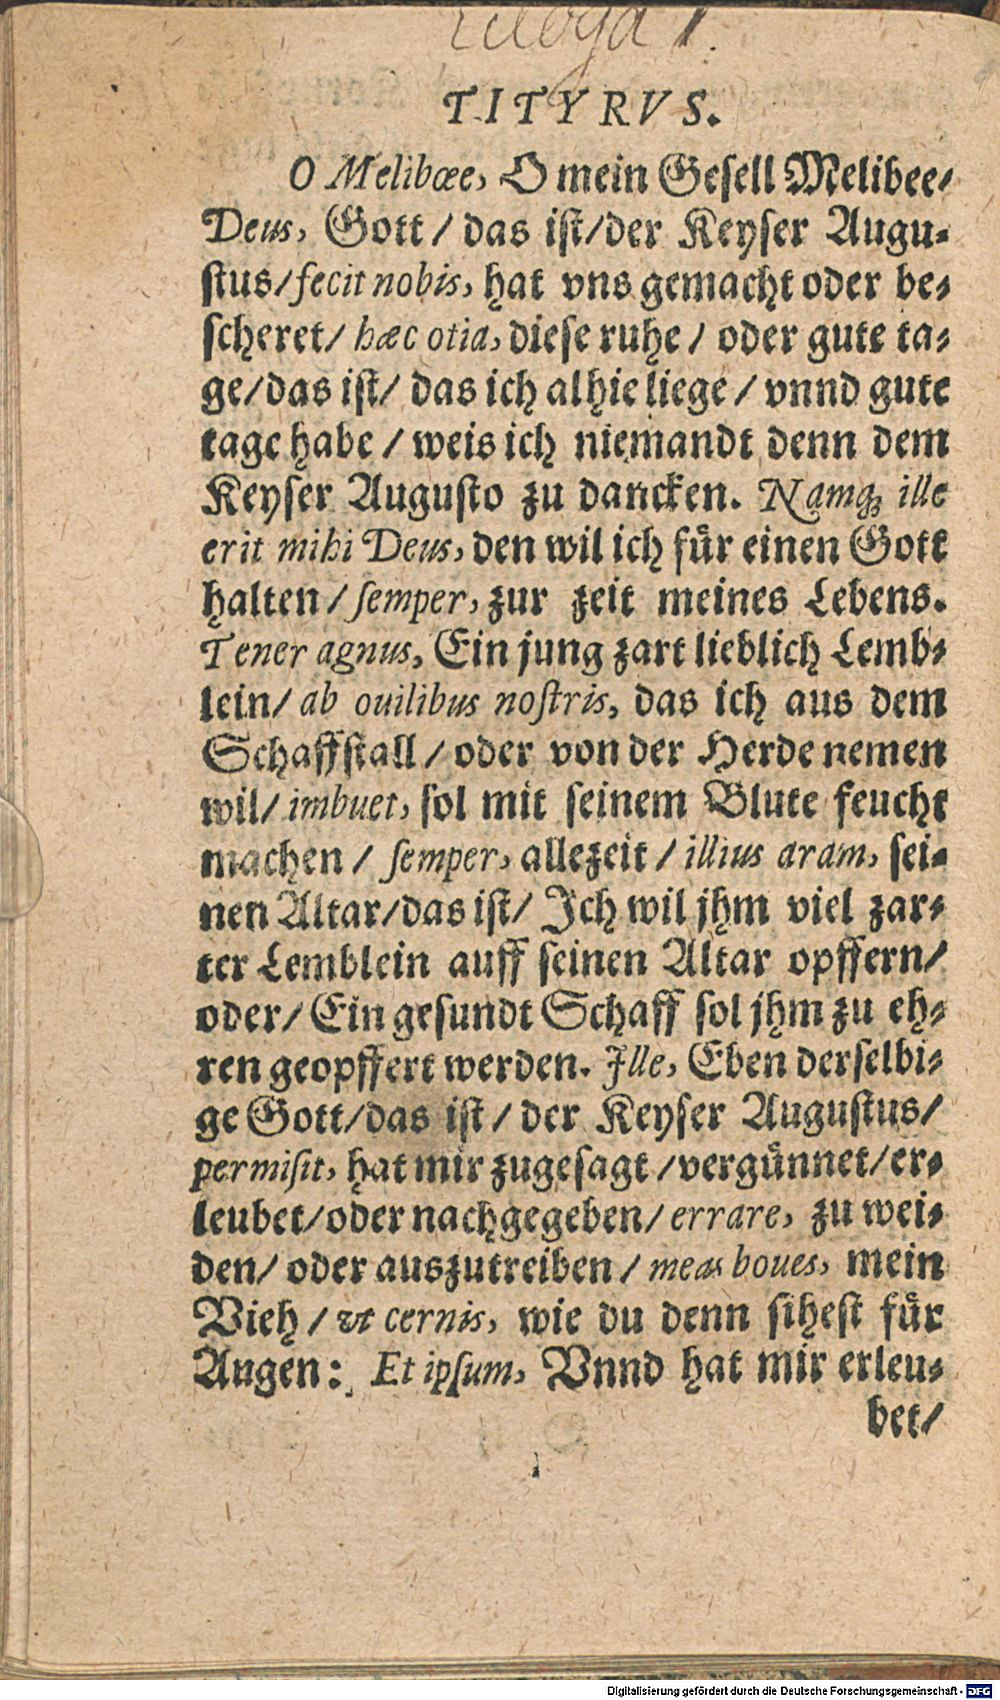 Ecloga 1.
TITYRVS.
O Melibœe, O mein Gesell Melibee/
Deus, Gott / das ist/der Keyser Augu-
stus/fecit nobis, hat vns gemacht oder be-
scheret/ hæc otia, diese ruhe / oder gute ta-
ge/das ist/ das ich alhie liege / vnnd gute
tage habe / weis ich niemandt denn dem
Keyser Augusto zu dancken. Namq; ille
erit mihi Deus, den wil ich fuͤr einen Gott
halten / semper, zur zeit meines Lebens.
Tener agnus, Ein jung zart lieblich Lemb-
lein/ ab ouilibus nostris, das ich aus dem
Schaffstall / oder von der Herde nemen
wil/ imbuet, sol mit seinem Blute feucht
machen / semper, allezeit / illius aram, sei-
nen Altar/das ist/ Ich wil jhm viel zar-
ter Lemblein auff seinen Altar opffern/
oder/ Ein gesundt Schaff sol jhm zu eh-
ren geopffert werden. Ille, Eben derselbi-
ge Gott/das ist / der Keyser Augustus/
permisit, hat mir zugesagt /verguͤnnet/er-
leubet/oder nachgegeben/ errare, zu wei-
den/ oder auszutreiben / meas boues, mein
Vieh / vt cernis, wie du denn sihest fuͤr
Augen: Et ipsum, Vnnd hat mir erleu-
bet/
Digitalisierung gefördert durch die Deutsche Forschungsgemeinschaft - DFG